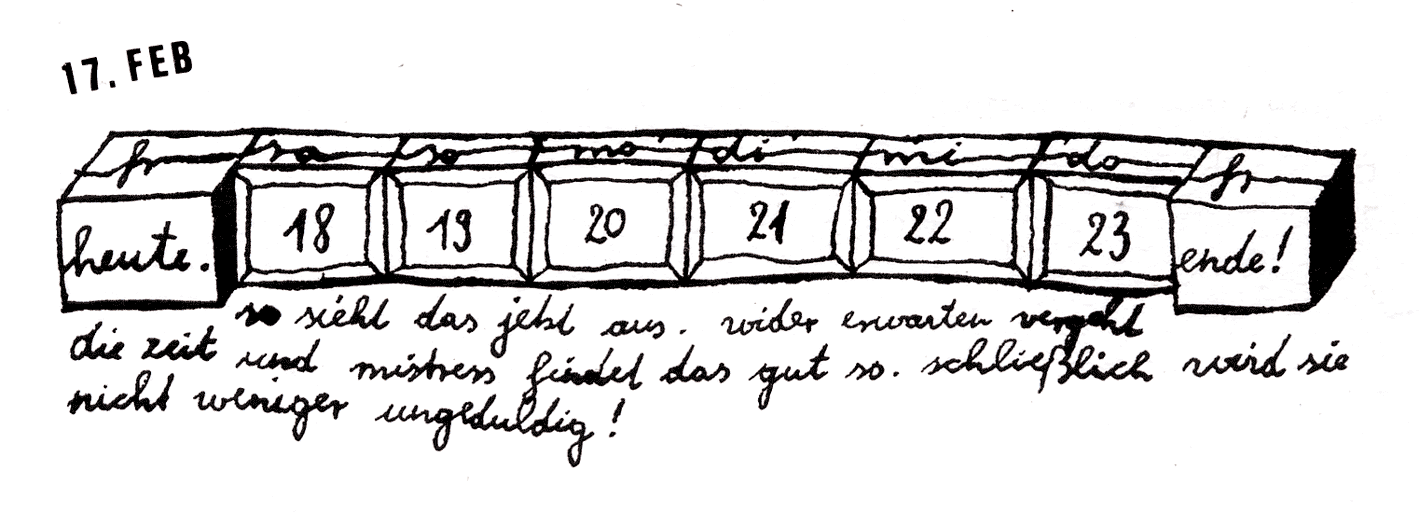 17. FEB
fr sa so mo di mi do fr
heute. 18 19 20 21 22 23 ende!
so sieht das jetzt aus. wider erwarten vergeht
die zeit und mistress findet das gut so. schließlich wird sie
nicht weniger ungeduldig!